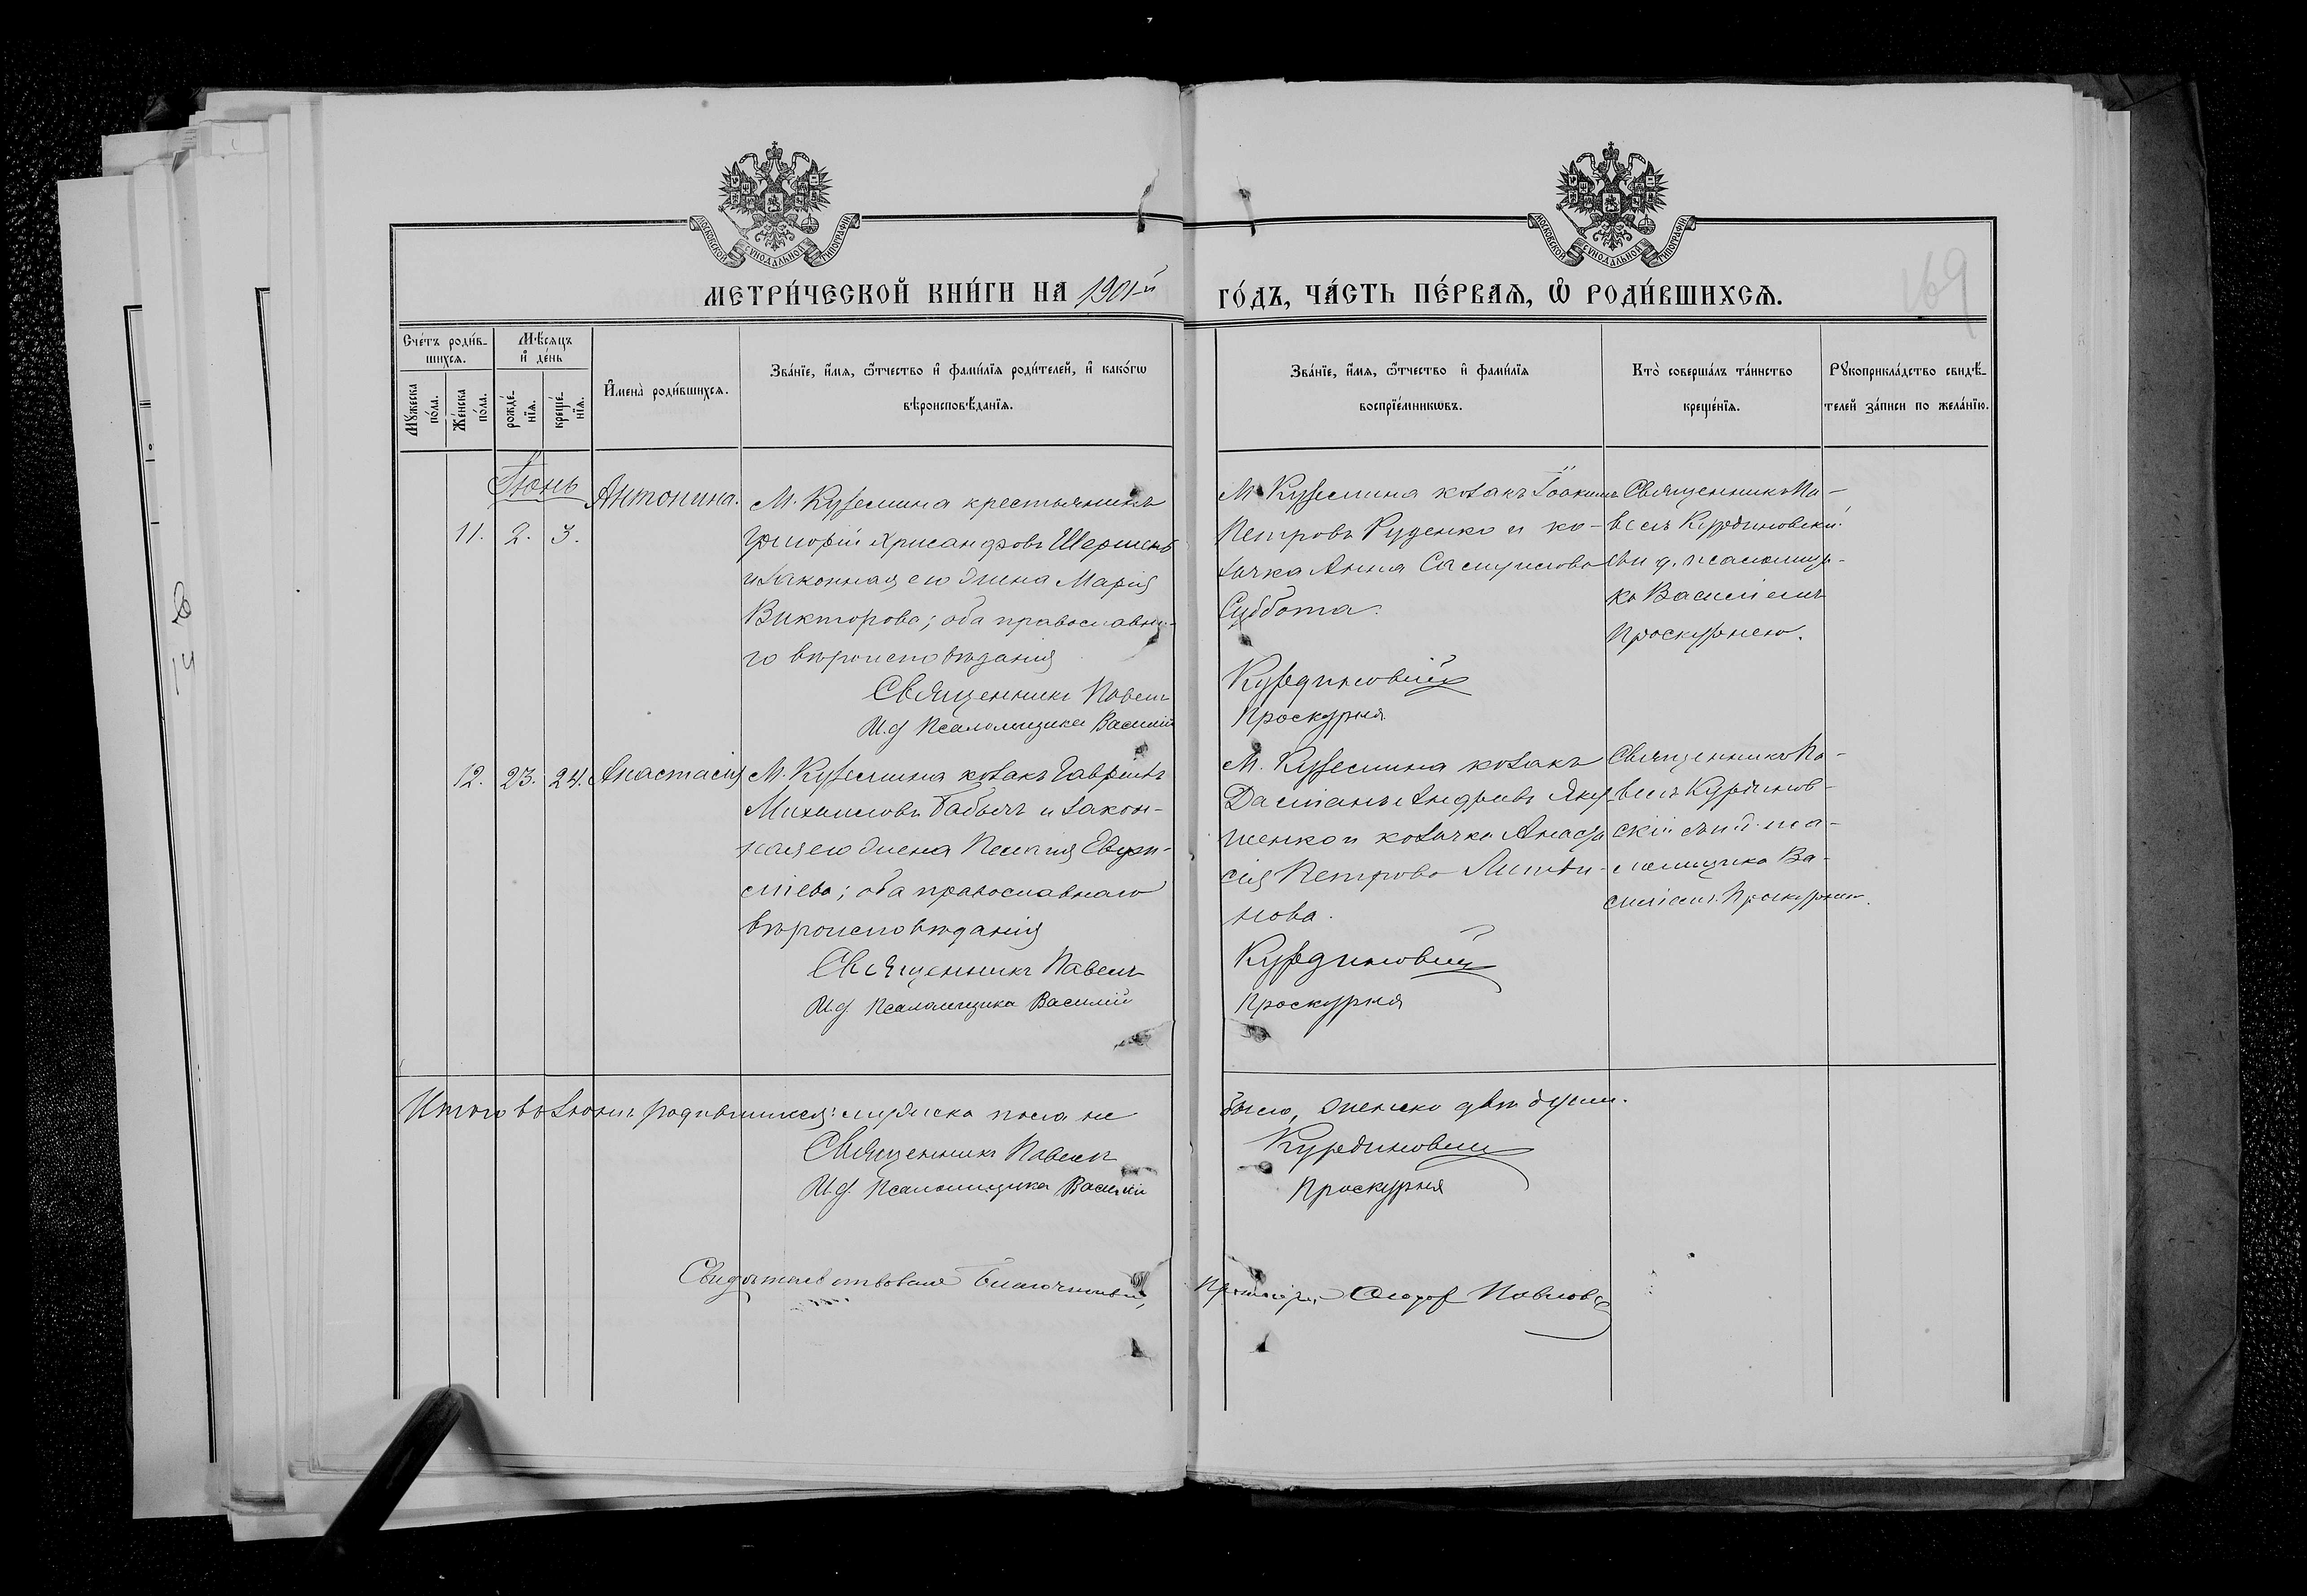 МОСКОВСКОЙ СУНОДАЛЬНОЙ ТИПОГРАФІИ
МОСКОВСКОЙ СУНОДАЛЬНОЙ ТИПОГРАФІИ
МЕТРИ́ЧЕСКОЙ КНИ́ГИ НА 1901-й
ГО́ДЪ, ЧА́СТЬ ПЕ́РВАѦ, Ѽ РОДИ́ВШИХСѦ.
169
Сче́тъ роди́в-
шихсѧ.
Мѣ́сѧцъ
и҆ де́нь
Мꙋ́жеска
по́ла.
Же́нска
по́ла.
рожде́-
нїѧ.
креще́-
нїѧ.
И҆мена̀ роди́вшихсѧ.
Зва́нїе, и҆́мѧ, ѻ҆́тчество и҆ фами́лїѧ роди́телей, и҆ како́гѡ
вѣроисповѣ́данїѧ.
Зва́нїе, и҆́мѧ, ѻ҆́тчество и҆ фами́лїѧ
воспрїе́мникѡвъ.
Кто̀ соверша́лъ та́инство
креще́нїѧ.
Рꙋкоприкла́дство свидѣ́-
телей за́писи по жела́нїю.
Іюнь
11. 2. 3.
Антонина.
М. Куземина крестьянинъ
Григорій Хрисанфовъ Шершень
и законная его жена Марія
Викторова; оба православна-
го вѣроисповѣданія
Священникъ Павелъ
И.д. Псаломщика Василій
М. Куземина козакъ Іоакимъ
Петровъ Руденко и ко-
зачка Анна Самуилова
Суббота.
Курдиновскій
Проскурня
Священникъ Па-
велъ Курдиновскій
съ и д. псаломщи-
ка Василіемъ
Проскурнею.
12. 23. 24. Анастасія
М. Куземина козакъ Гавріилъ
Михаиловъ Бабычъ и закон-
ная его жена Пелагія Евфи-
міева; оба православнаго
вѣроисповѣданія
Священникъ Павелъ
И.д. Псаломщика Василій
М. Куземина козакъ
Даміанъ Андреевъ Яку-
шенко и козачка Анаста
сія Петрова Литви-
нова.
Курдиновскій
Проскурня
Священникъ Па-
велъ Курдинов-
скій
ломщика Ва-
силіемъ Проскурнею.
Итого въ Іюнѣ родившихся: мужеска пола не
было, женска двѣ души.
Священникъ Павелъ
Курдиновскій
И.д. Псаломщика Василій
Проскурня
Свидѣтельствовалъ Благочинный,
Протоіерей Ѳеодоръ Павловскій